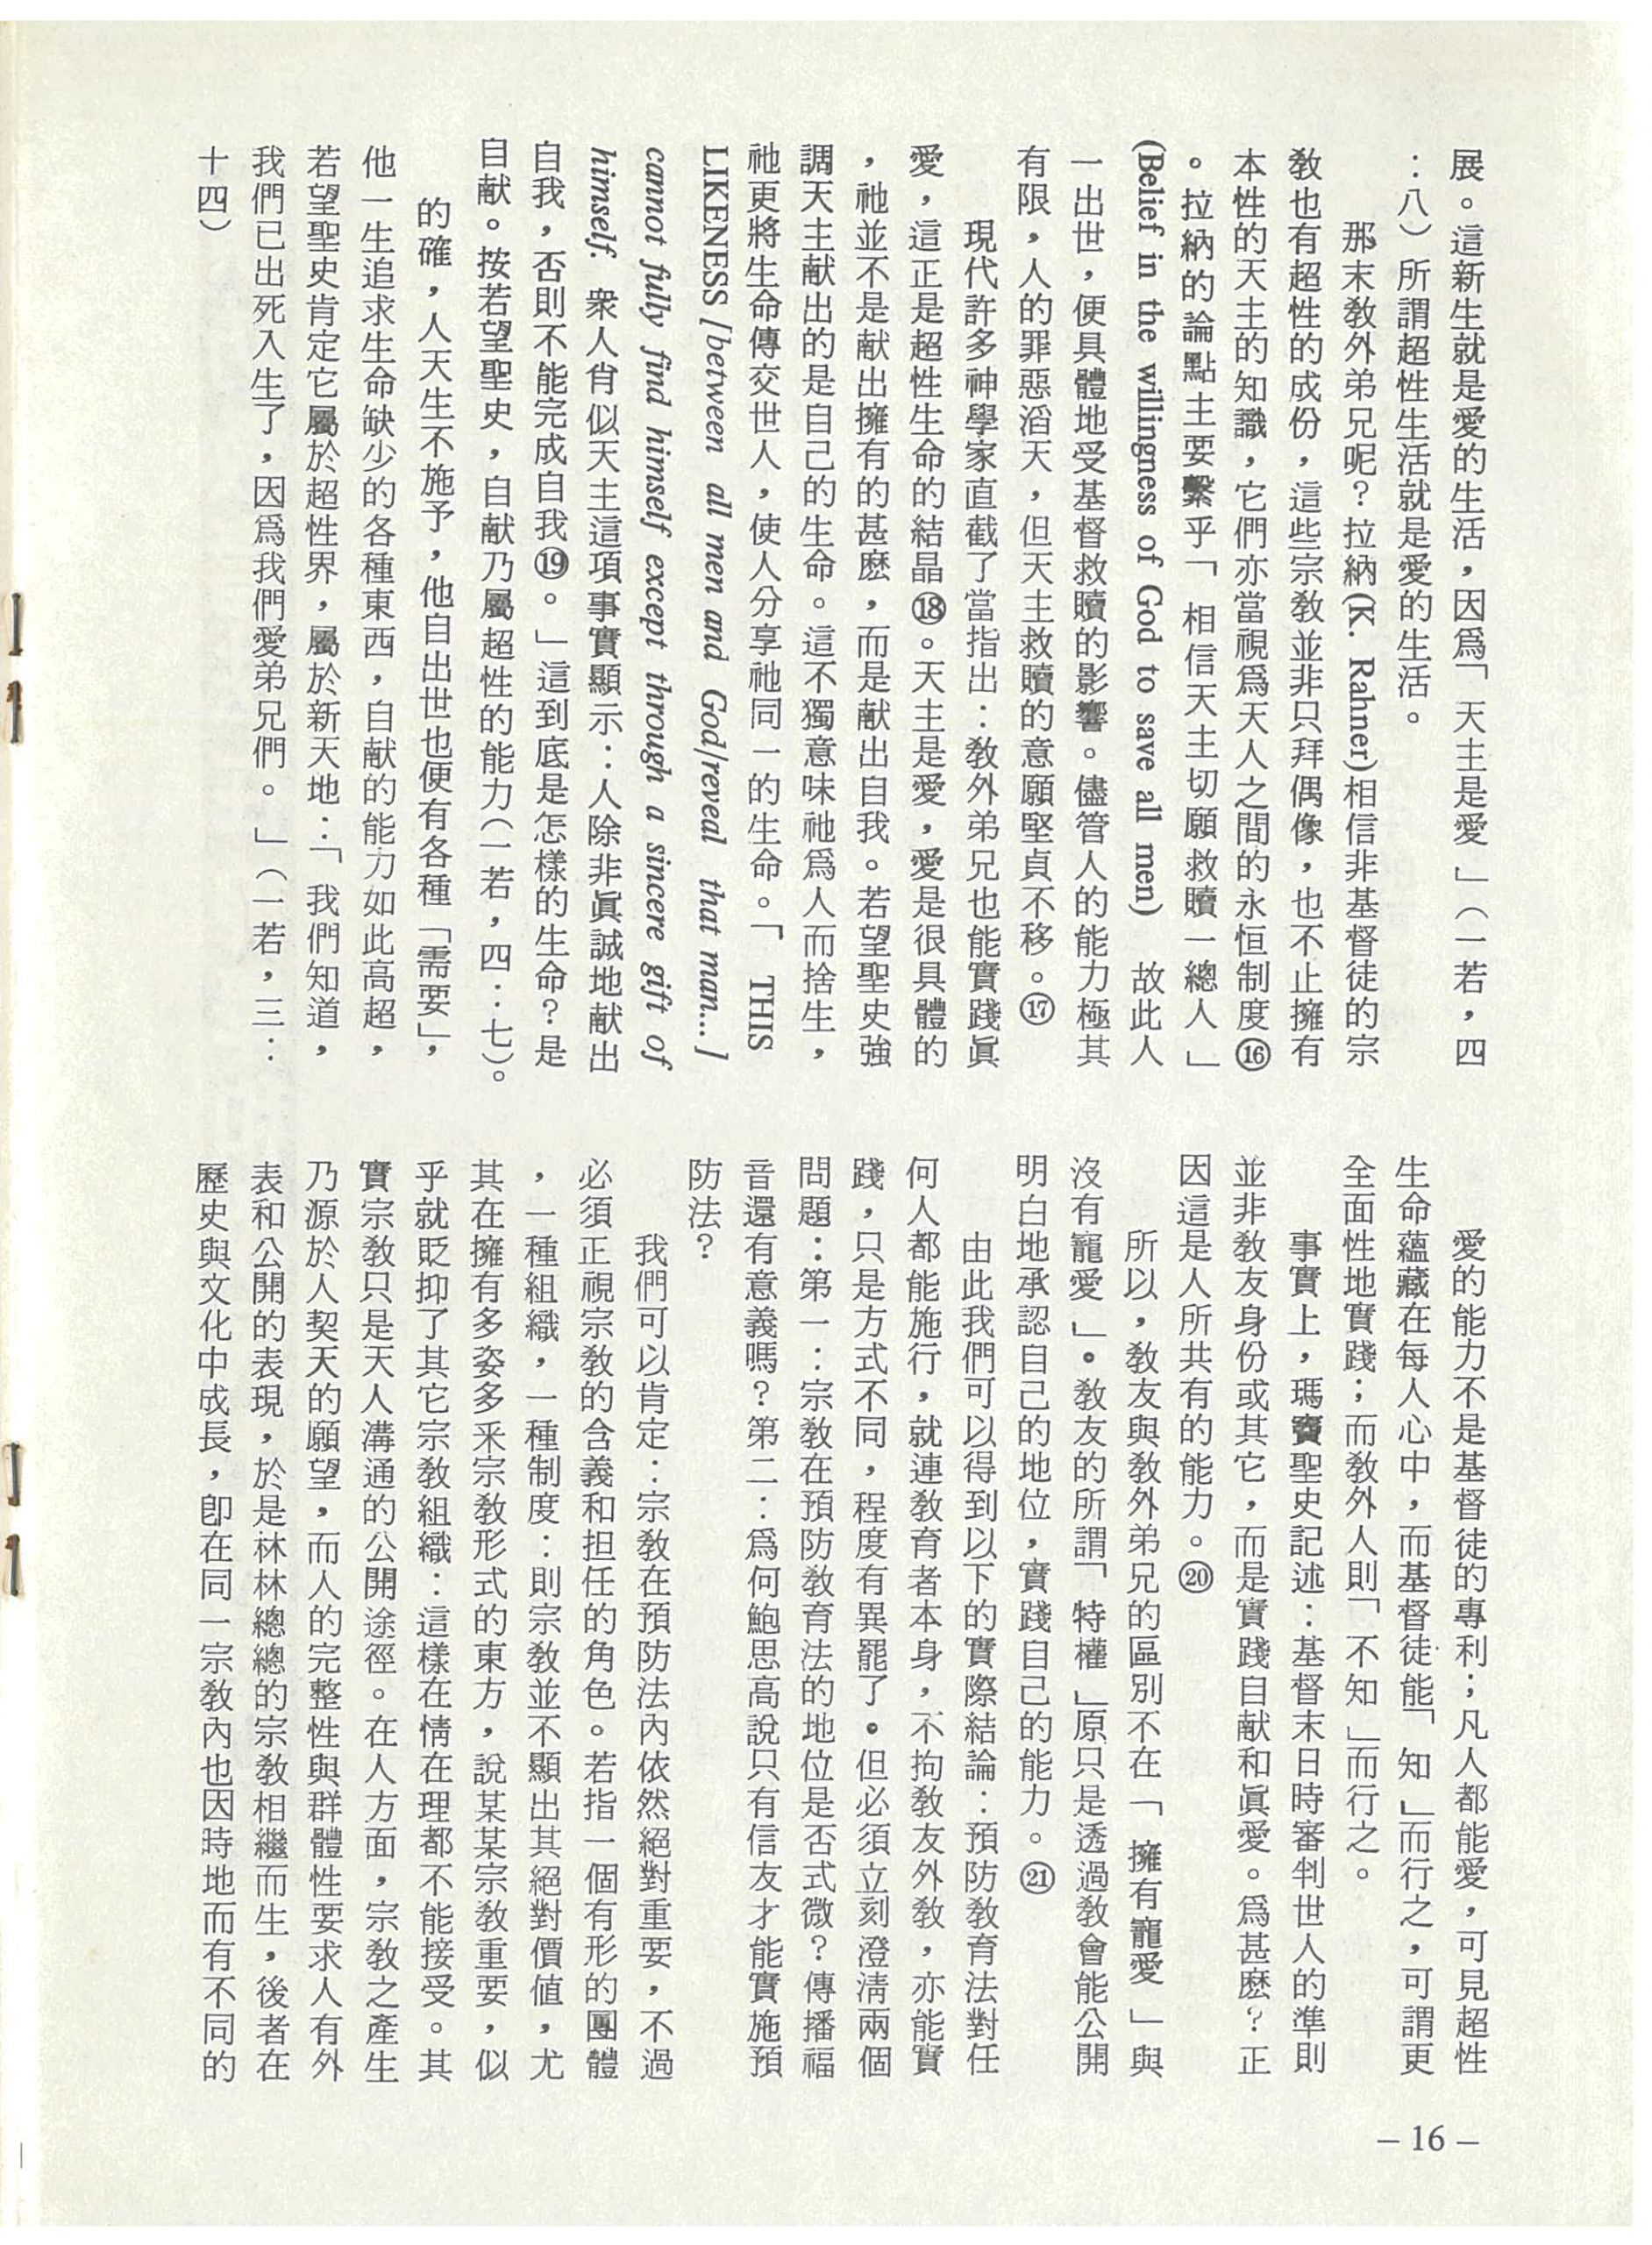 展。這新生就是愛的生活，因爲「天主是愛」（一若，四
：八）所謂超性生活就是愛的生活。
那末敎外弟兄呢？拉納(K. Rahner)相信非基督徒的宗
敎也有超性的成份，這些宗敎並非只拜偶像，也不止擁有
本性的天主的知識，它們亦當視爲天人之間的永恒制度⑯
。拉納的論點主要繫乎「相信天主切願救贖一總人」
(Belief in the willingness of God to save all men) 故此人
一出世，便具體地受基督救贖的影響。儘管人的能力極其
有限，人的罪惡滔天，但天主救贖的意願堅貞不移。⑰
現代許多神學家直截了當指出：敎外弟兄也能實踐眞
愛，這正是超性生命的結晶⑱。天主是愛，愛是很具體的
，祂並不是献出擁有的甚麽，而是献出自我。若望聖史強
調天主献出的是自己的生命。這不獨意味祂爲人而捨生，
祂更將生命傳交世人，使人分享祂同一的生命。「THIS
LIKENESS [between all men and God/reveal that man...]
cannot fully find himself except through a sincere gift of
himself. 衆人肖似天主這項事實顯示：人除非眞誠地献出
自我，否則不能完成自我⑲。」這到底是怎樣的生命？是
自献。按若望聖史，自献乃屬超性的能力（一若，四：七）。
的確，人天生不施予，他自出世也便有各種「需要」，
他一生追求生命缺少的各種東西，自献的能力如此高超，
若望聖史肯定它屬於超性界，屬於新天地：「我們知道，
我們已出死入生了，因爲我們愛弟兄們。」（一若，三：
十四）
愛的能力不是基督徒的專利；凡人都能愛，可見超性
生命蘊藏在每人心中，而基督徒能「知」而行之，可謂更
全面性地實踐；而敎外人則「不知」而行之。
事實上，瑪竇聖史記述：基督末日時審判世人的準則
並非敎友身份或其它，而是實踐自献和眞愛。爲甚麽？正
因這是人所共有的能力。⑳
所以，敎友與敎外弟兄的區別不在「擁有寵愛」與
沒有寵愛」。敎友的所謂「特權」原只是透過敎會能公開
明白地承認自己的地位，實踐自己的能力。㉑
由此我們可以得到以下的實際結論：預防敎育法對任
何人都能施行，就連敎育者本身，不拘敎友外敎，亦能實
踐，只是方式不同，程度有異罷了。但必須立刻澄淸兩個
問題：第一：宗敎在預防敎育法的地位是否式微？傳播福
音還有意義嗎？第二：爲何鮑思高說只有信友才能實施預
防法？
我們可以肯定：宗敎在預防法內依然絕對重要，不過
必須正視宗敎的含義和担任的角色。若指一個有形的團體
，一種組織，一種制度：則宗敎並不顯出其絕對價值，尤
其在擁有多姿多釆宗敎形式的東方，說某某宗敎重要，似
乎就貶抑了其它宗敎組織：這樣在情在理都不能接受。其
實宗敎只是天人溝通的公開途徑。在人方面，宗敎之產生
乃源於人契天的願望，而人的完整性與群體性要求人有外
表和公開的表現，於是林林總總的宗敎相繼而生，後者在
歷史與文化中成長，卽在同一宗敎內也因時地而有不同的
– 16 –